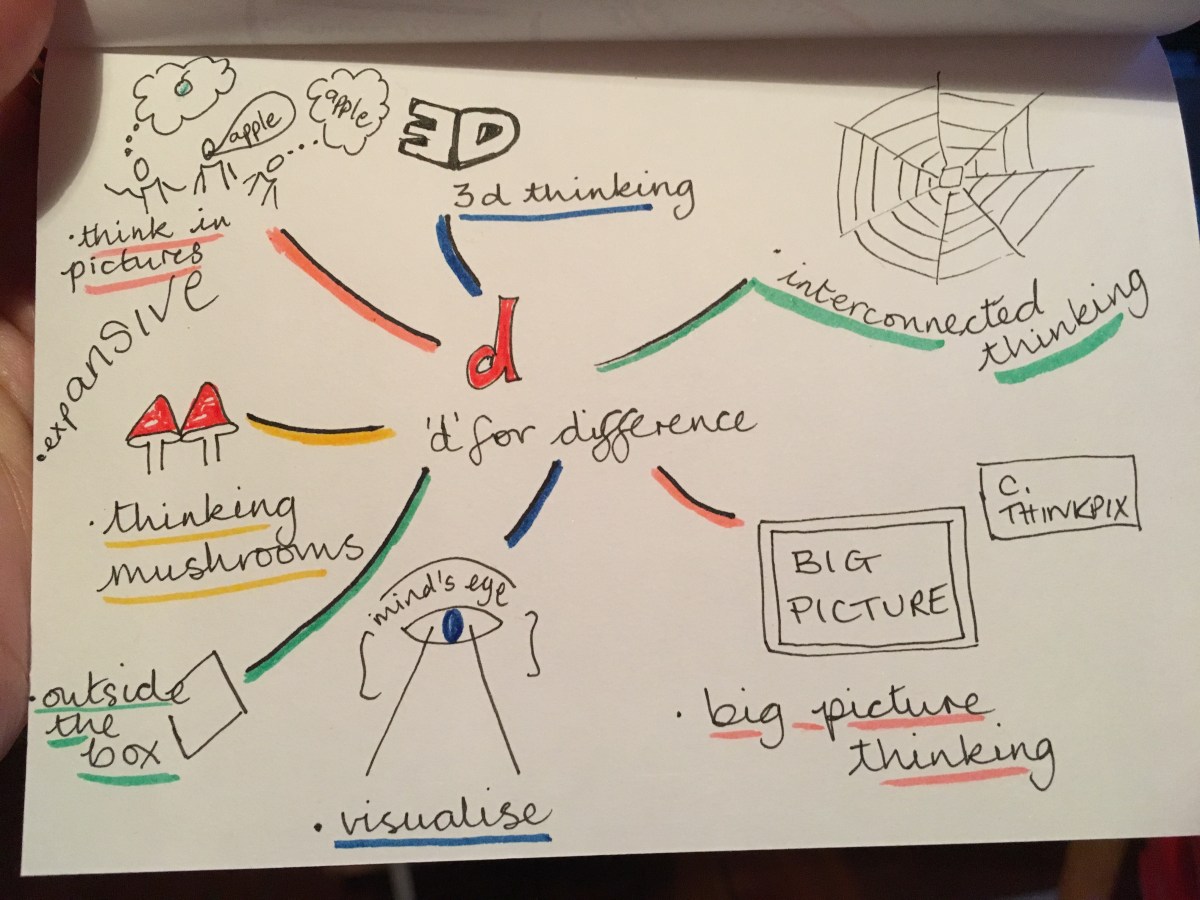 apple
apple
3D
3d thinking
· think in
pictures
· expansive
· interconnected
thinking
d
'd' for difference
· thinking
mushrooms
mind's eye
C.
THINKPIX
BIG
PICTURE
· outside
the
box
· big - picture
thinking
· visualise